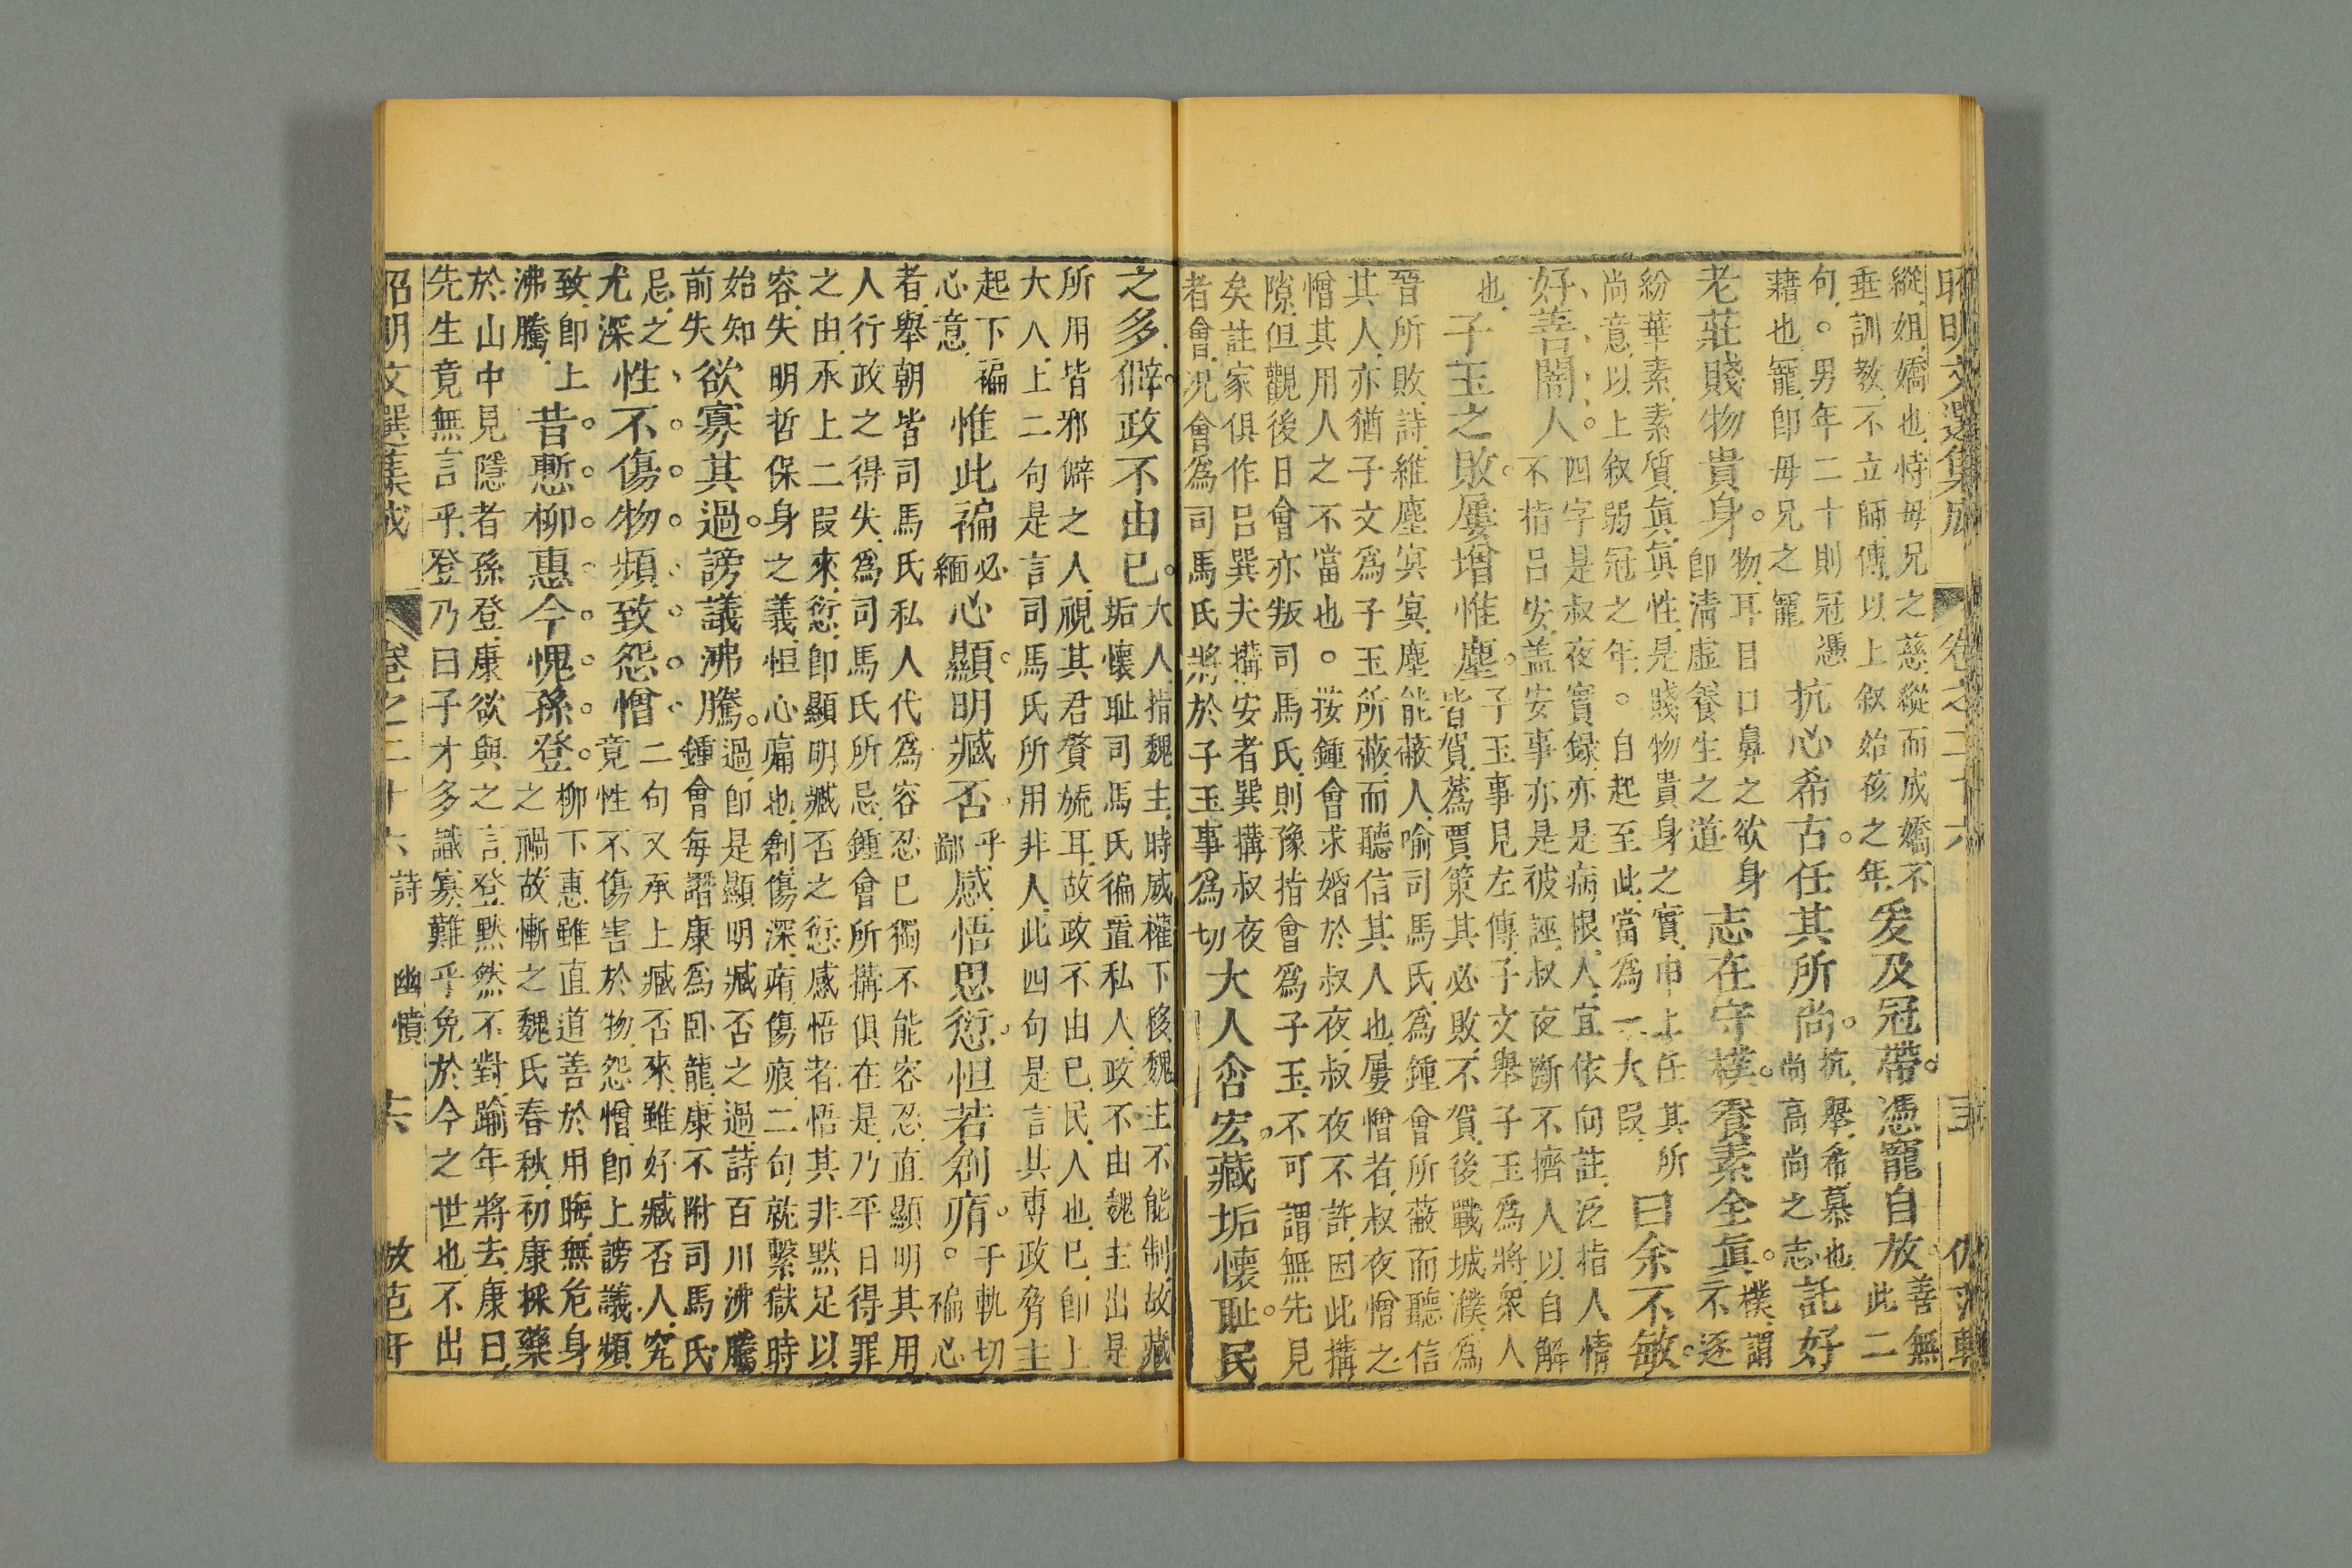 昭明文選集成 卷之二十六
縱姐嬌也恃母兄之慈縱而成嬌不
垂訓教不立師傅以上叙始孩之年
爰及冠帶憑寵自放
善無
此二
句。男年二十則冠憑
藉也寵即毋兄之寵
抗心希古任其所尚
抗舉希慕也
尚高尚之志
託好
老莊賤物貴身
物耳目口鼻之欲身
即清虛養生之道
志在守樸養素全眞
樸謂
不逐
紛華素素質眞眞性是賤物貴身之實申上任其所
尚意以上叙弱冠之年。自起至此當爲一大段
曰余不敏
好善闇人
四字是叔夜實録亦是病恨人宜依向註泛指人情
不指呂安盖安事亦是彼誣叔夜斷不擠人以自解
也
子玉之敗屢增惟塵
子玉事見左傳子文舉子玉爲將衆人
皆賀蔿賈策其必敗不賀後戰城濮爲
晉所敗詩維塵冥冥塵能蔽人喻司馬氏爲鍾會所蔽而聽信
其人亦猶子文爲子玉所蔽而聽信其人也屢憎者叔夜憎之
憎其用人之不當也。按鍾會求婚於叔夜叔夜不許因此搆
隙但觀後日會亦叛司馬氏則豫指會爲子玉不可謂無先見
矣註家俱作呂巽夫搆安者巽搆叔夜
者會况會爲司馬氏將於子玉事爲切
大人含宏藏垢懷耻民
之多僻政不由已
大人指魏主時威權下移魏主不能制故藏
垢懷耻司馬氏徧置私人政不由魏主出是
所用皆邪僻之人視其君贅旒耳故政不由已民人也已即上
大人上二句是言司馬氏所用非人此四句是言其專政脅主
起下褊
心意
惟此褊
必
緬
心顯明臧否
乎
鄙
感悟思愆怛若創痏
于軌切
褊心
者舉朝皆司馬氏私人代爲容忍已獨不能容忍直顯明其用
人行政之得失爲司馬氏所忌鍾會所搆俱在是乃平日得罪
之由承上二段來愆即顯明臧否之愆感悟者悟其非默足以
容失明哲保身之義怛心痛也創傷深痏傷痕二句就繫獄時
始知
前失
欲寡其過謗議沸騰
過即是顯明臧否之過詩百川沸騰
鍾會每譖康爲卧龍康不附司馬氏
忌之
尤深
性不傷物頻致怨憎
二句又承上臧否來雖好臧否人究
竟性不傷害於物怨憎即上謗議頻
致即上
沸騰
昔慙柳惠今愧孫登
柳下惠雖直道善於用晦無危身
之禍故慚之魏氏春秋初康採藥
於山中見隱者孫登康欲與之言登默然不對踰年將去康曰
先生竟無言乎登乃曰子才多識寡難乎免於今之世也不出
昭明文選集成 卷之二十六 詩 幽憤 十六